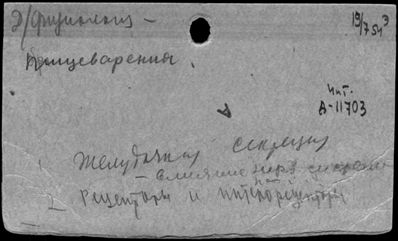 Э/физиология -
19/7 54
Пищеварения.
Чит.
А-11703
Желудочная секреция
- влияние нерв
на
- Рецепторы и интерорецепторы